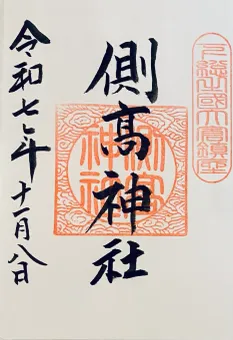 下総國大倉鎮座
側高神社
側高神社
令和七年十一月八日